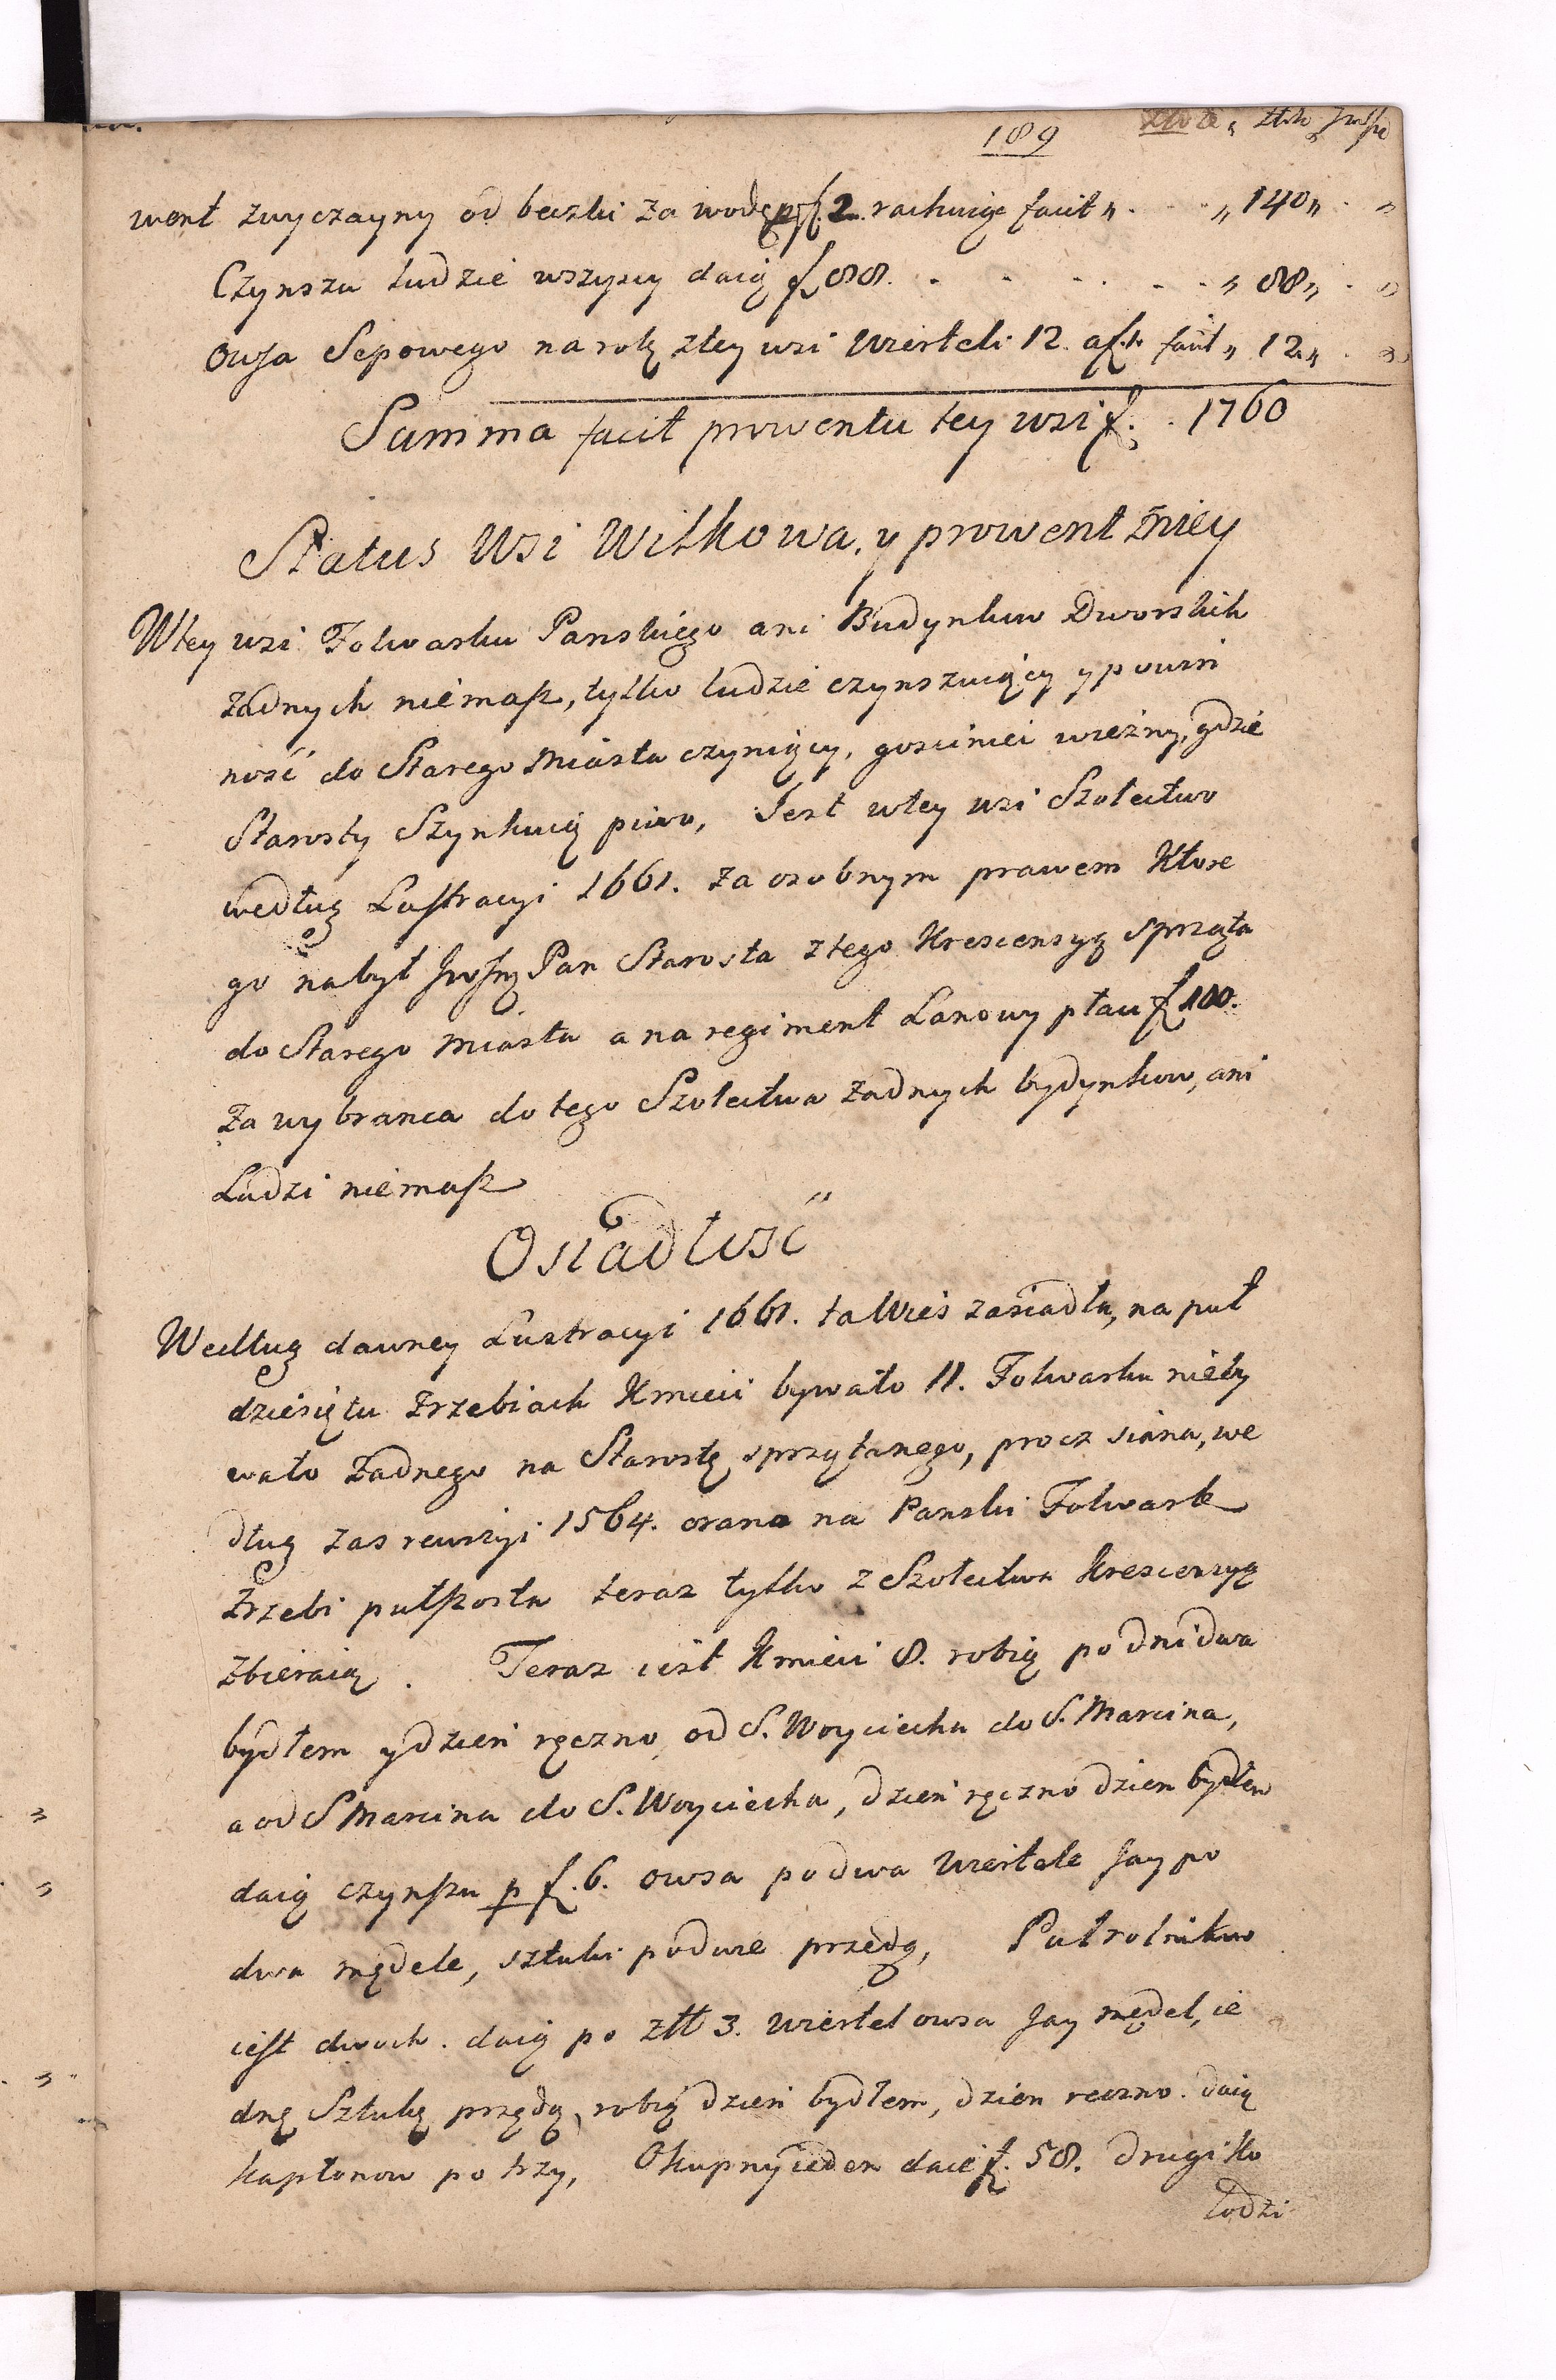 189
went zwyczayny od beczki za wodę p f. 2. rachuiąc facit „ . . „ 140 „ . „
Czynszu ludzie wszyscy daią f 88. . . . . . . „ 88 „ . „
Owsa Sepowego na rolę z tey wsi Wierteli 12. a f. 1. facit „ 12. „ . „
Summa facit prowentu tey wsi f. . 1760
Status Wsi Witkowa, y prowent zniey
Wtey wsi Folwarku Panskiego ani Budynkow Dworskich
żadnych niemasz, tylko ludzie czynszuiący y powin
ność do Starego Miasta czyniący, gosciniec wiezny, gdzie
Starosty Szynkuią piwo, Jest wtey wsi Szolectwo
według Lustracyi 1661. za osobnym prawem Ktore
go nabył Pan Starosta ztego Krescensyą sprząta
do Starego Miasta a na regiment Lanowy płaci f 100.
za wybranca do tego Szolectwa żadnych bydynkow, ani
Ludzi niemasz
Osiadłość
Według dawney Lustracyi 1661. ta Wieś zasiadła, na puł
dziesiętu Zrzebiach Kmieci bywało 11. Folwarku nieby
wało żadnego na Starostę sprzątanego, procz siana, we
dług zas rewizyi 1564. orano na Panski Folwark
Zrzebi pułszosta teraz tylko z Szolectwa Krescensyą
zbieraią . Teraz iest Kmieci 8. robią po dni dwa
bydłem y dzien ręczno, od S. Woyciecha do S. Marcina,
a od S Marcina do S. Woyciecha, dzień ręczno dzien bydłem
daią czynszu p f. 6. owsa po dwa Wiertele Jay po
dwa mędele, sztuki po dwie przędą, Pułrolnikow
iest dwoch. daią po złł 3. Wiertel owsa Jay mędel, ie
dnę Sztukę przędą, robią dzień bydłem, dzien reczno. daią
kapłonow po trzy, Okupny ieden daie f. 58. drugi Ko
łodzi